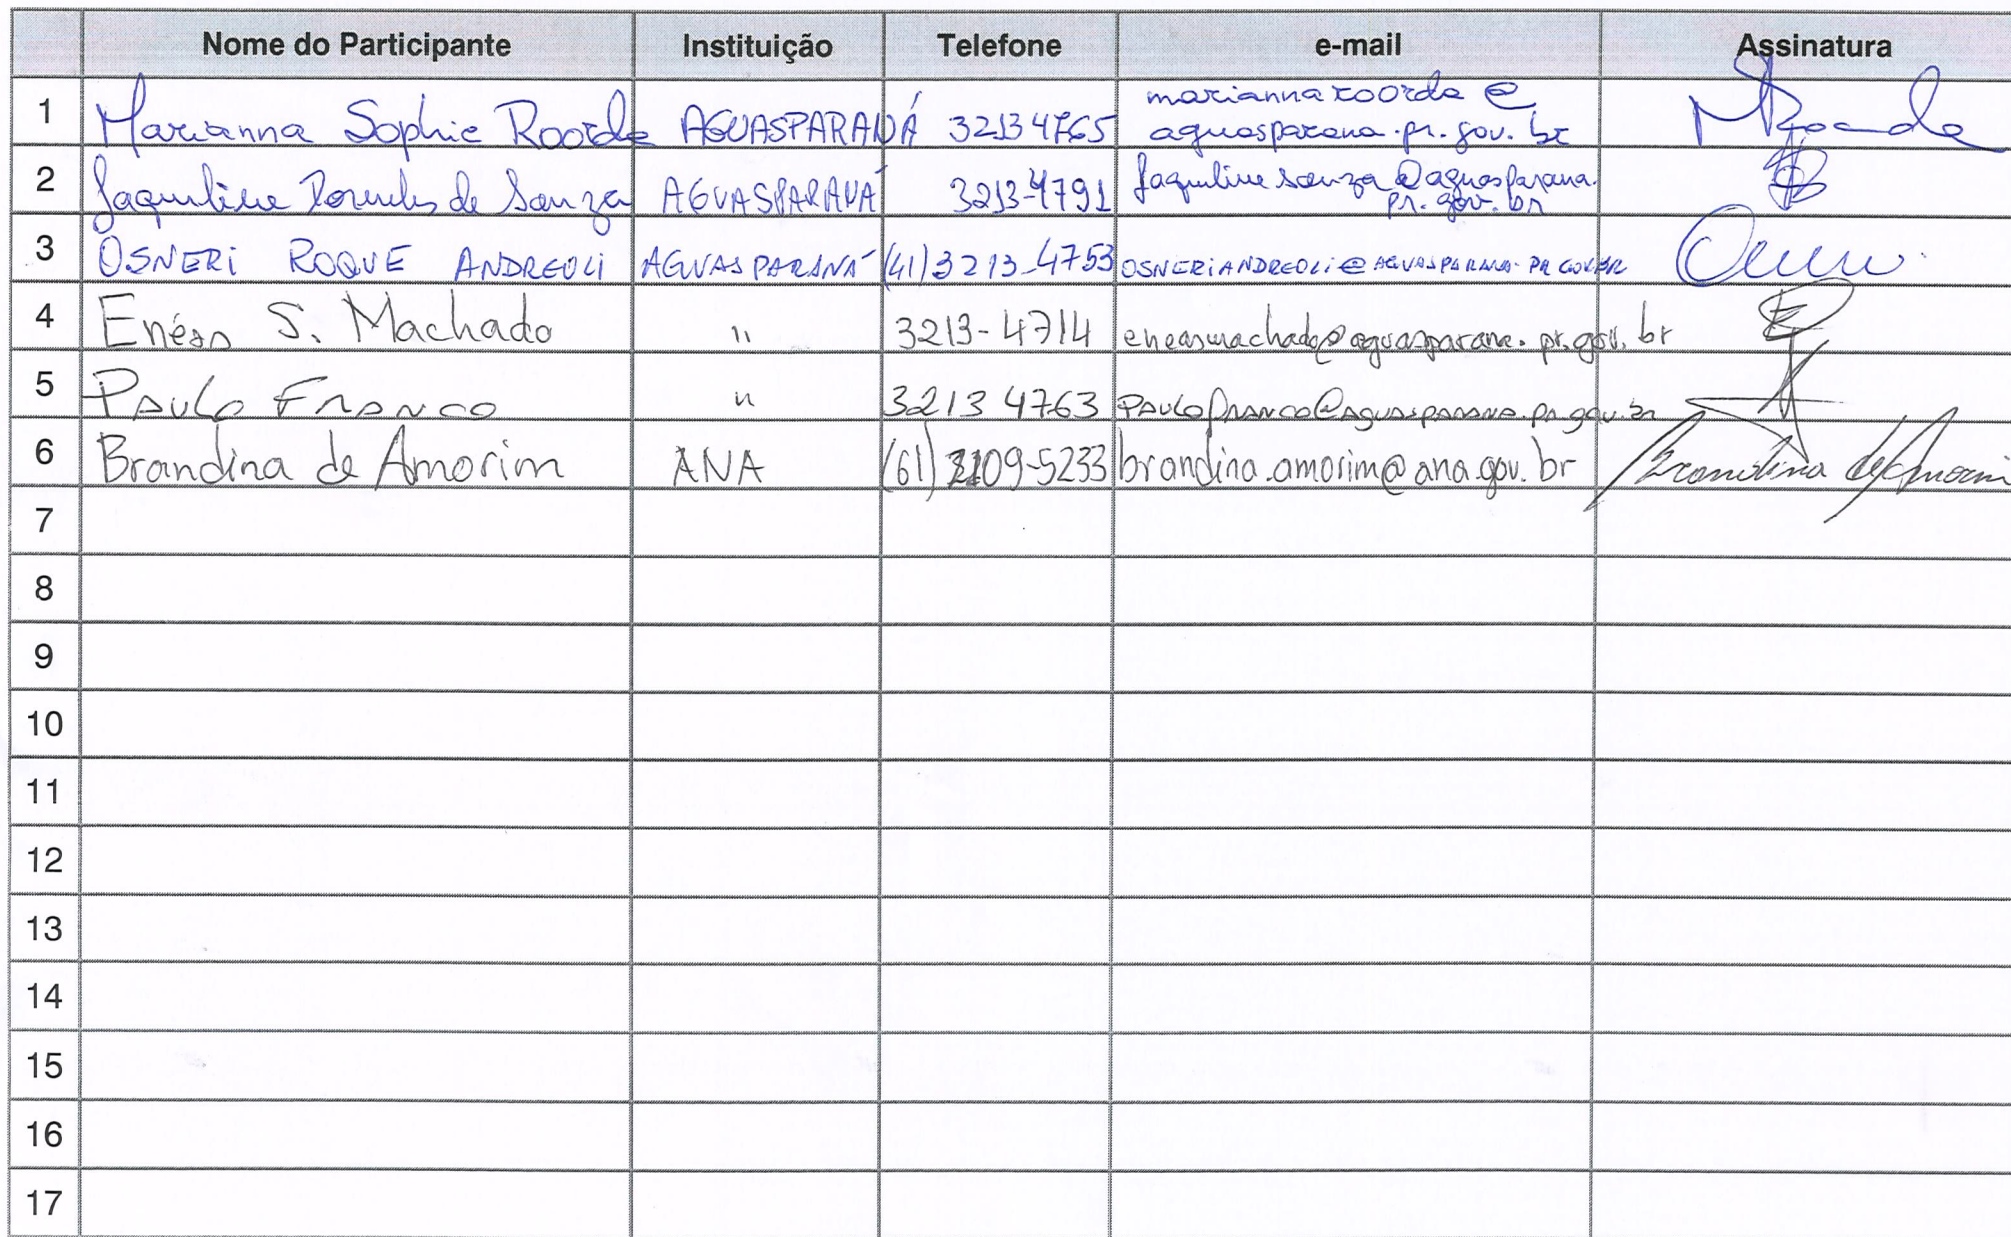 Nome do Participante Instituição Telefone e-mail Assinatura
1 Marianna Sophie Roorda AGUASPARANÁ 32134765 mariannaroorda@
aguasparana.pr.gov.br
2 Jaqueline de Souza AGUASPARANÁ 3213-4791 jaquelinesouza@aguasparana.
pr.gov.br
3 OSNERI ROQUE ANDREOLI AGUASPARANÁ (41)3213-4753 OSNERIANDREOLI@AGUASPARANA.PR.GOV.BR
4 Enéas S. Machado " 3213-4714 eneasmachado@aguasparana.pr.gov.br
5 PAULO FRANCO " 3213 4763 PAULOFRANCO@AGUASPARANA.PR.gov.br
6 Brandina de Amorim ANA (61) 2109-5233 brandina.amorim@ana.gov.br Brandina de Amorim
7
8
9
10
11
12
13
14
15
16
17